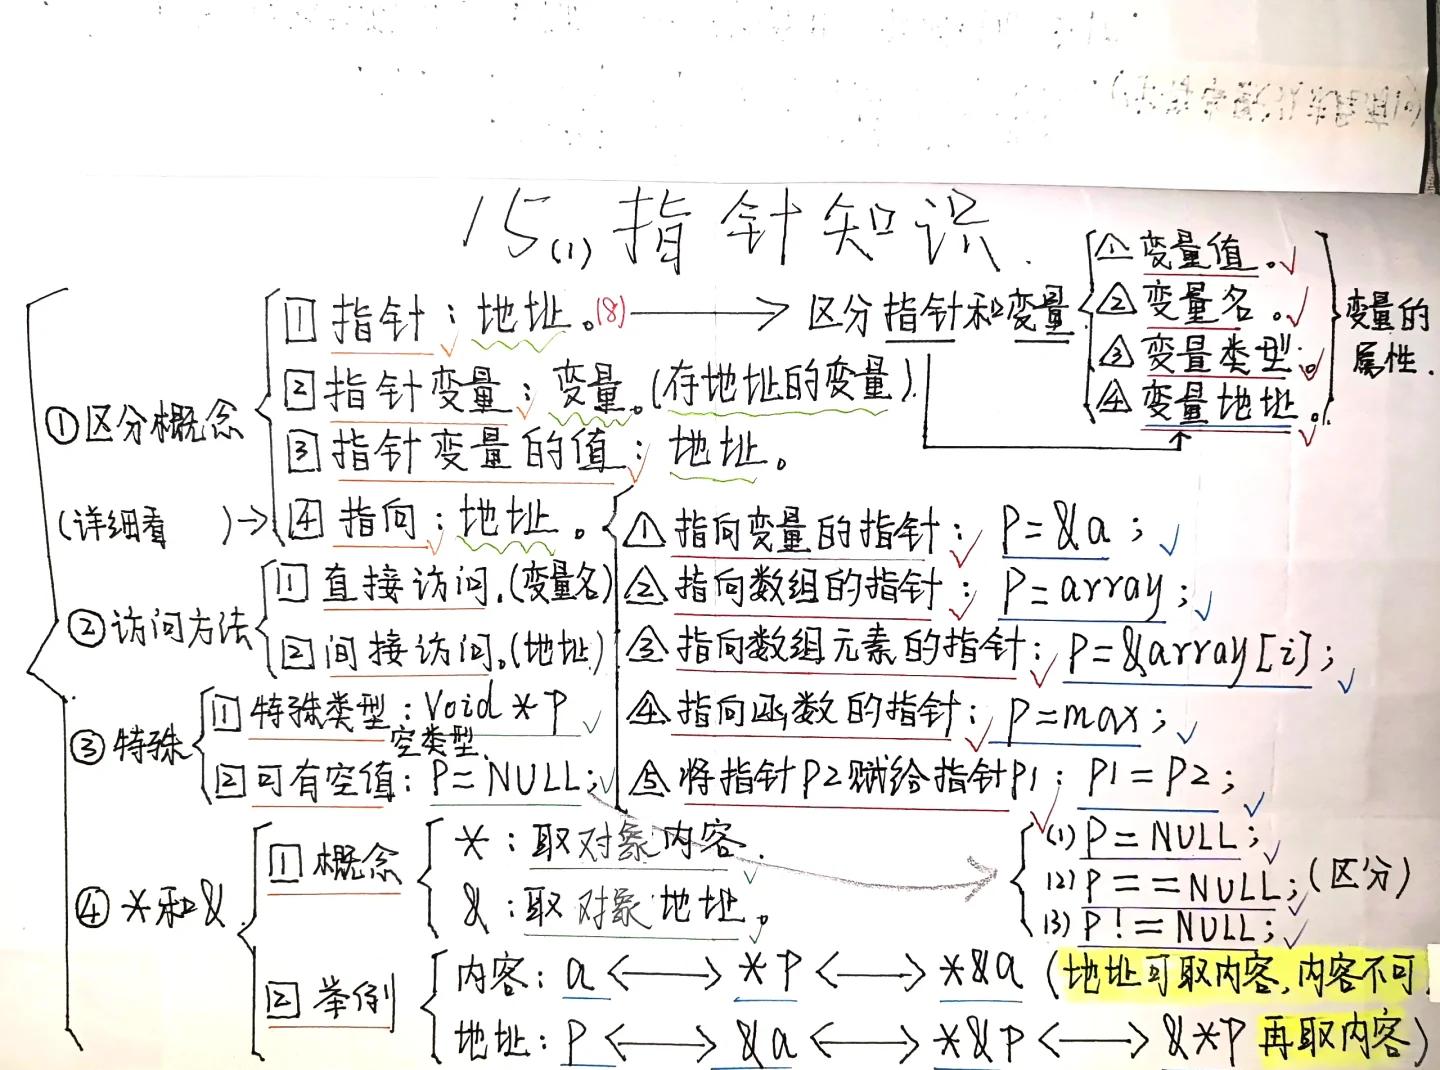 15.(1)指针知识.
①区分概念
1 指针：地址。(8)→区分指针和变量
①变量值。
②变量名。
③变量类型。
④变量地址。
变量的属性.
2 指针变量：变量。(存地址的变量).
3 指针变量的值：地址。
(详细看 )→4 指向：地址。
①指向变量的指针：P=&a；
②指向数组的指针：P=array；
③指向数组元素的指针：P=&array[i]；
④指向函数的指针：P=max；
⑤将指针P2赋给指针P1：P1=P2；
②访问方法
1 直接访问.(变量名)
2 间接访问。(地址)
③特殊
1 特殊类型：Void *P
空类型.
2 可有空值：P=NULL；
(1) P=NULL；
(2) P==NULL；(区分)
(3) P!=NULL；
④ *和&.
1 概念
*：取对象内容.
&：取对象地址。
2 举例
内容：a ⟷ *P ⟷ *&a (地址可取内容,内容不可
地址：P ⟷ &a ⟷ *&P ⟷ &*P 再取内容)